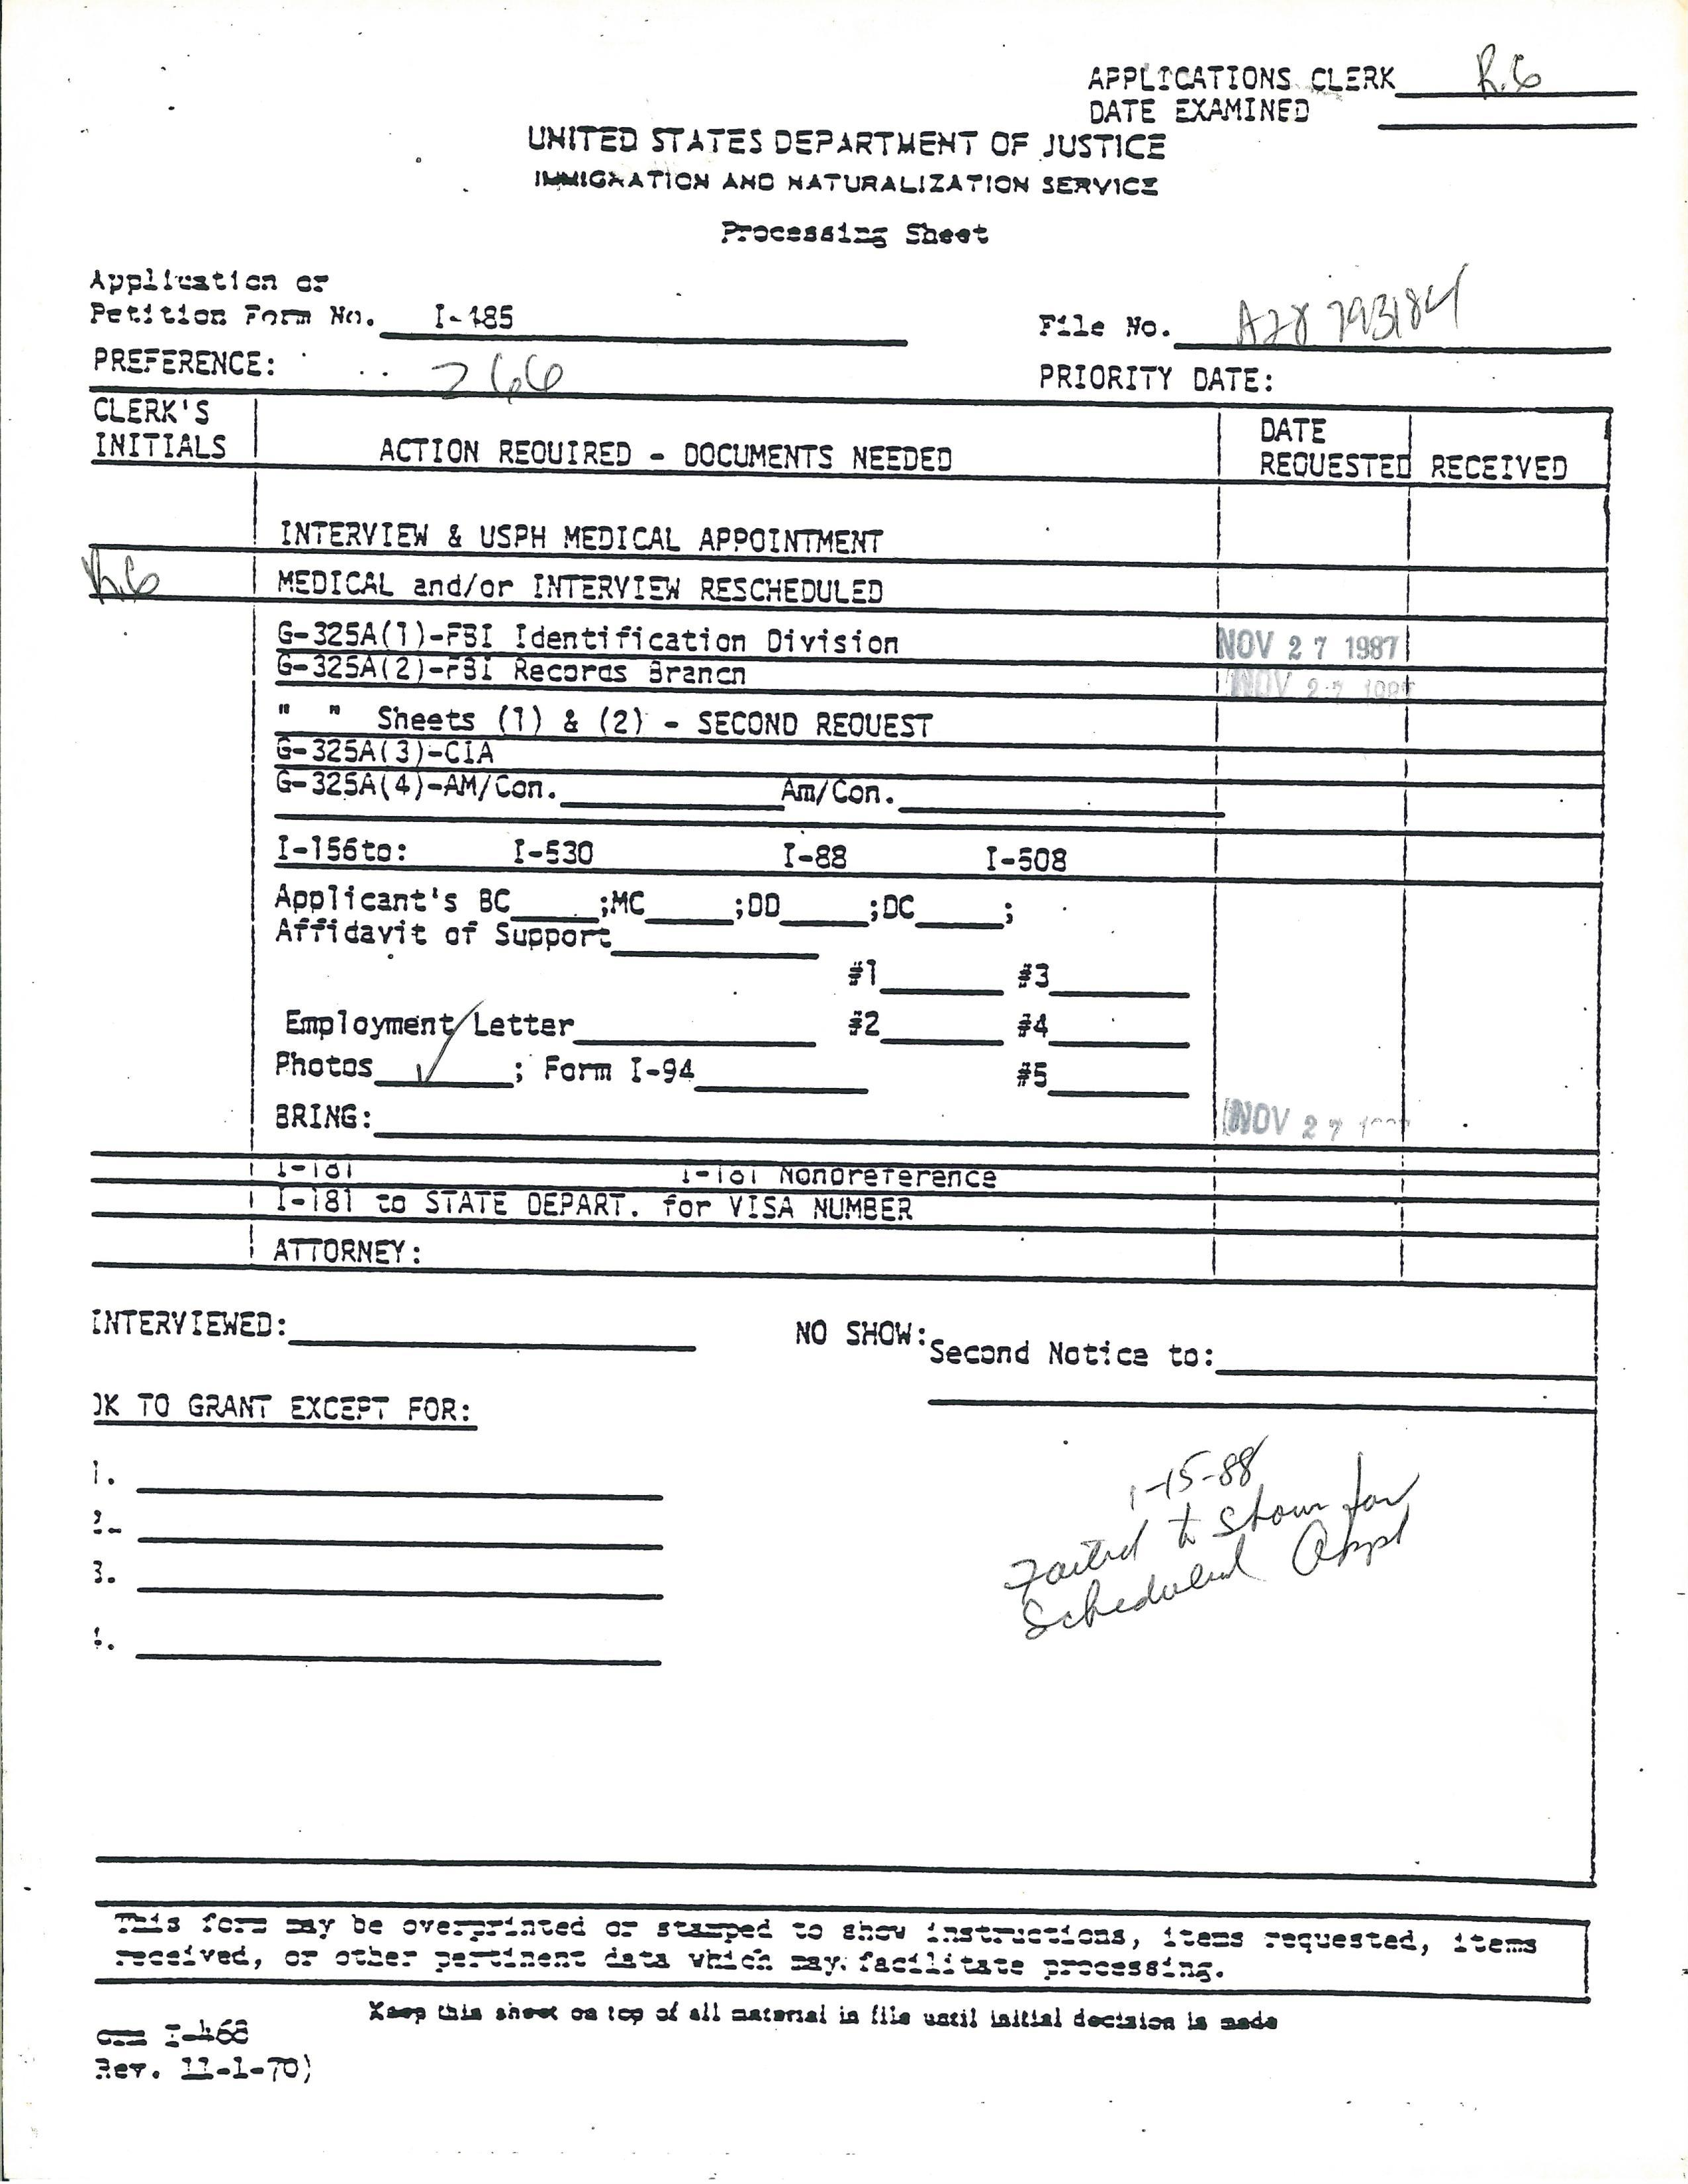 APPLICATIONS CLERK R.G
DATE EXAMINED
UNITED STATES DEPARTMENT OF JUSTICE
IMMIGRATION AND NATURALIZATION SERVICE
Processing Sheet
Application or
Petition Form No. I-485
File No. A28 793184
PREFERENCE: 
PRIORITY DATE:
CLERK'S INITIALS
ACTION REQUIRED - DOCUMENTS NEEDED
DATE REQUESTED
RECEIVED
INTERVIEW & USPH MEDICAL APPOINTMENT
R.G
MEDICAL and/or INTERVIEW RESCHEDULED
G-325A(1)-FBI Identification Division NOV 27 1987
G-325A(2)-FBI Records Branch NOV 27 1987
" " Sheets (1) & (2) - SECOND REQUEST
G-325A(3)-CIA
G-325A(4)-AM/Con. Am/Con.
I-156to: I-530 I-88 I-508
Applicant's BC ;MC ;DD ;DC ;
Affidavit of Support
#1 #3
Employment Letter #2 #4
Photos ✓ ; Form I-94 #5
BRING: NOV 27
I-181 I-181 Nonpreference
I-181 to STATE DEPART. for VISA NUMBER
ATTORNEY:
INTERVIEWED:
NO SHOW: Second Notice to:
OK TO GRANT EXCEPT FOR:
1.
2.
3.
4.
1-15-88
Failed to Show for
Scheduled Appt
This form may be overprinted or stamped to show instructions, items requested, items
received, or other pertinent data which may facilitate processing.
Keep this sheet on top of all material in file until initial decision is made
I-468
Rev. 11-1-70)